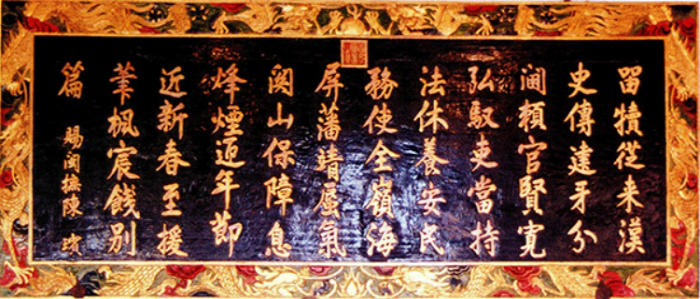 留犢從来漢
史傳建牙分
閫頼官賢寬
弘馭吏當持
法休養安民
務使全嶺海
屏藩靖蜃氣
関山保障息
烽煙迎年節
近新春至援
筆楓宸餞別
篇 賜閩撫陳璸